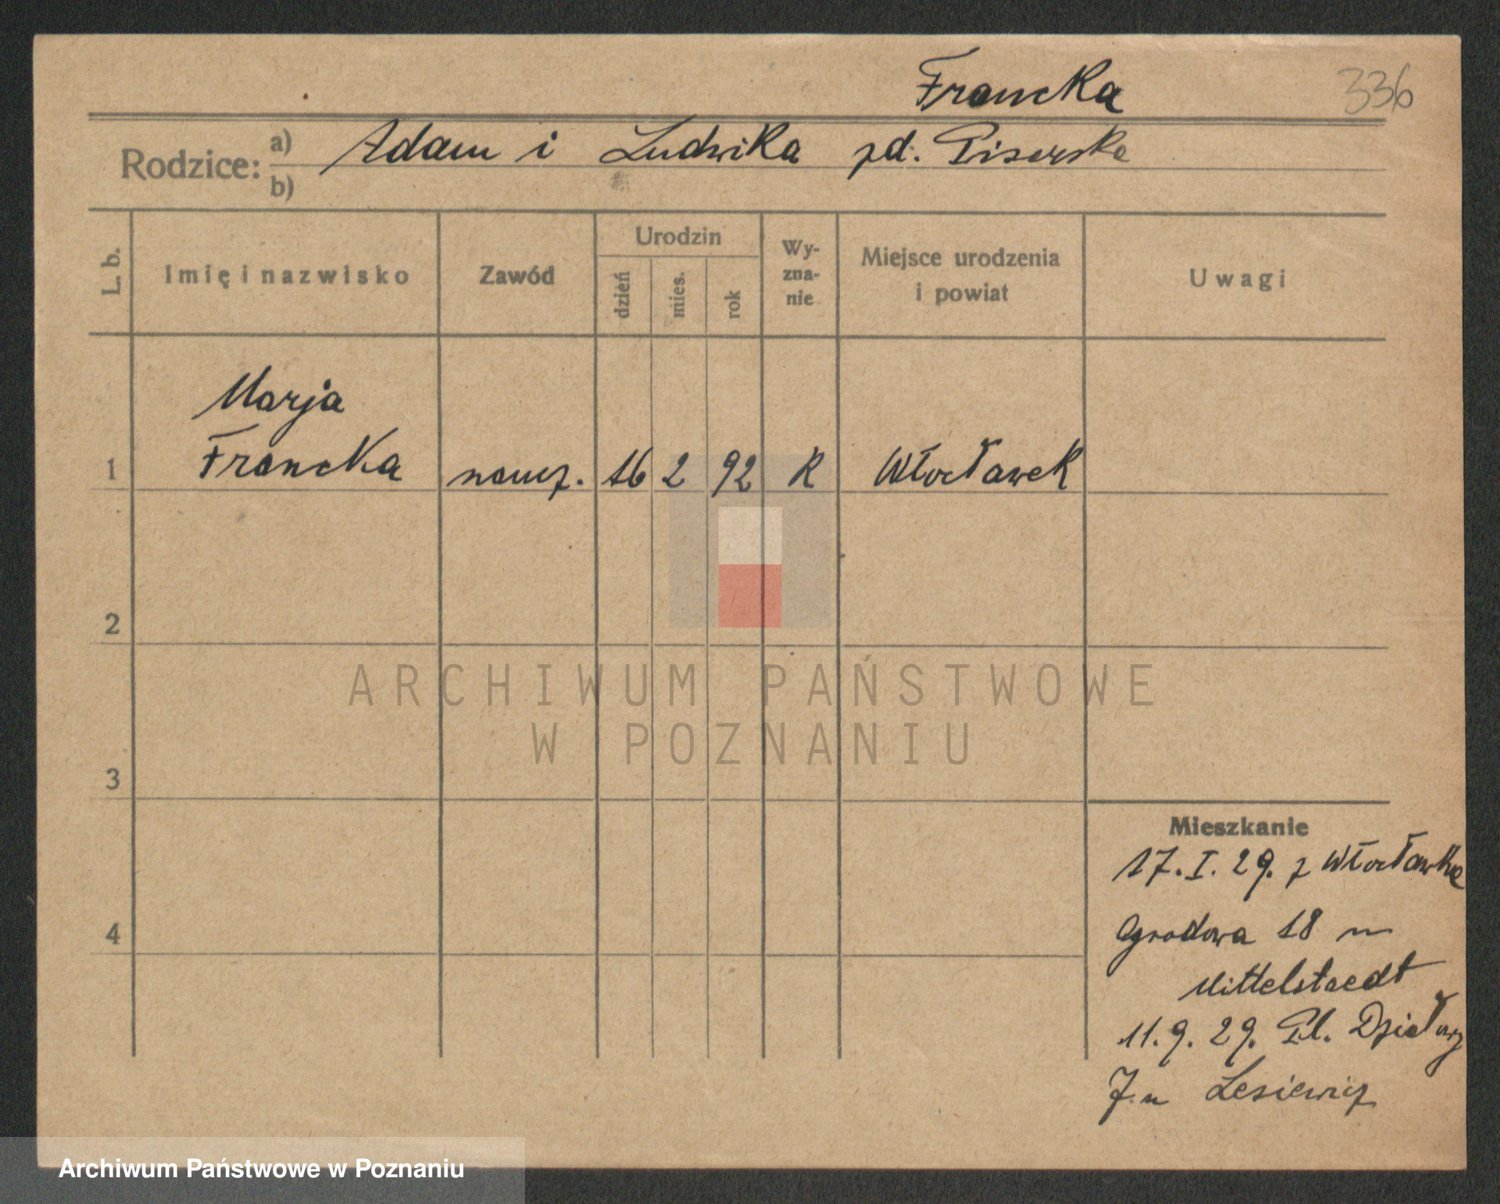 Francka
336
Rodzice: a) Adam i Ludwika zd. Pisarska
b)
L. b.
Imię i nazwisko
Zawód
Urodzin
dzień
mies.
rok
Wy-
zna-
nie
Miejsce urodzenia
i powiat
Uwagi
Marja
1 Francka naucz. 16 2 92 R Włocławek
2
3
4
Mieszkanie
17. I. 29. z Włocławka
Grodowa 18 u
Mittelstaedt
11. 9. 29. Pl. Działowy
7 u Lesiewicz
ARCHIWUM PAŃSTWOWE
W POZNANIU
Archiwum Państwowe w Poznaniu